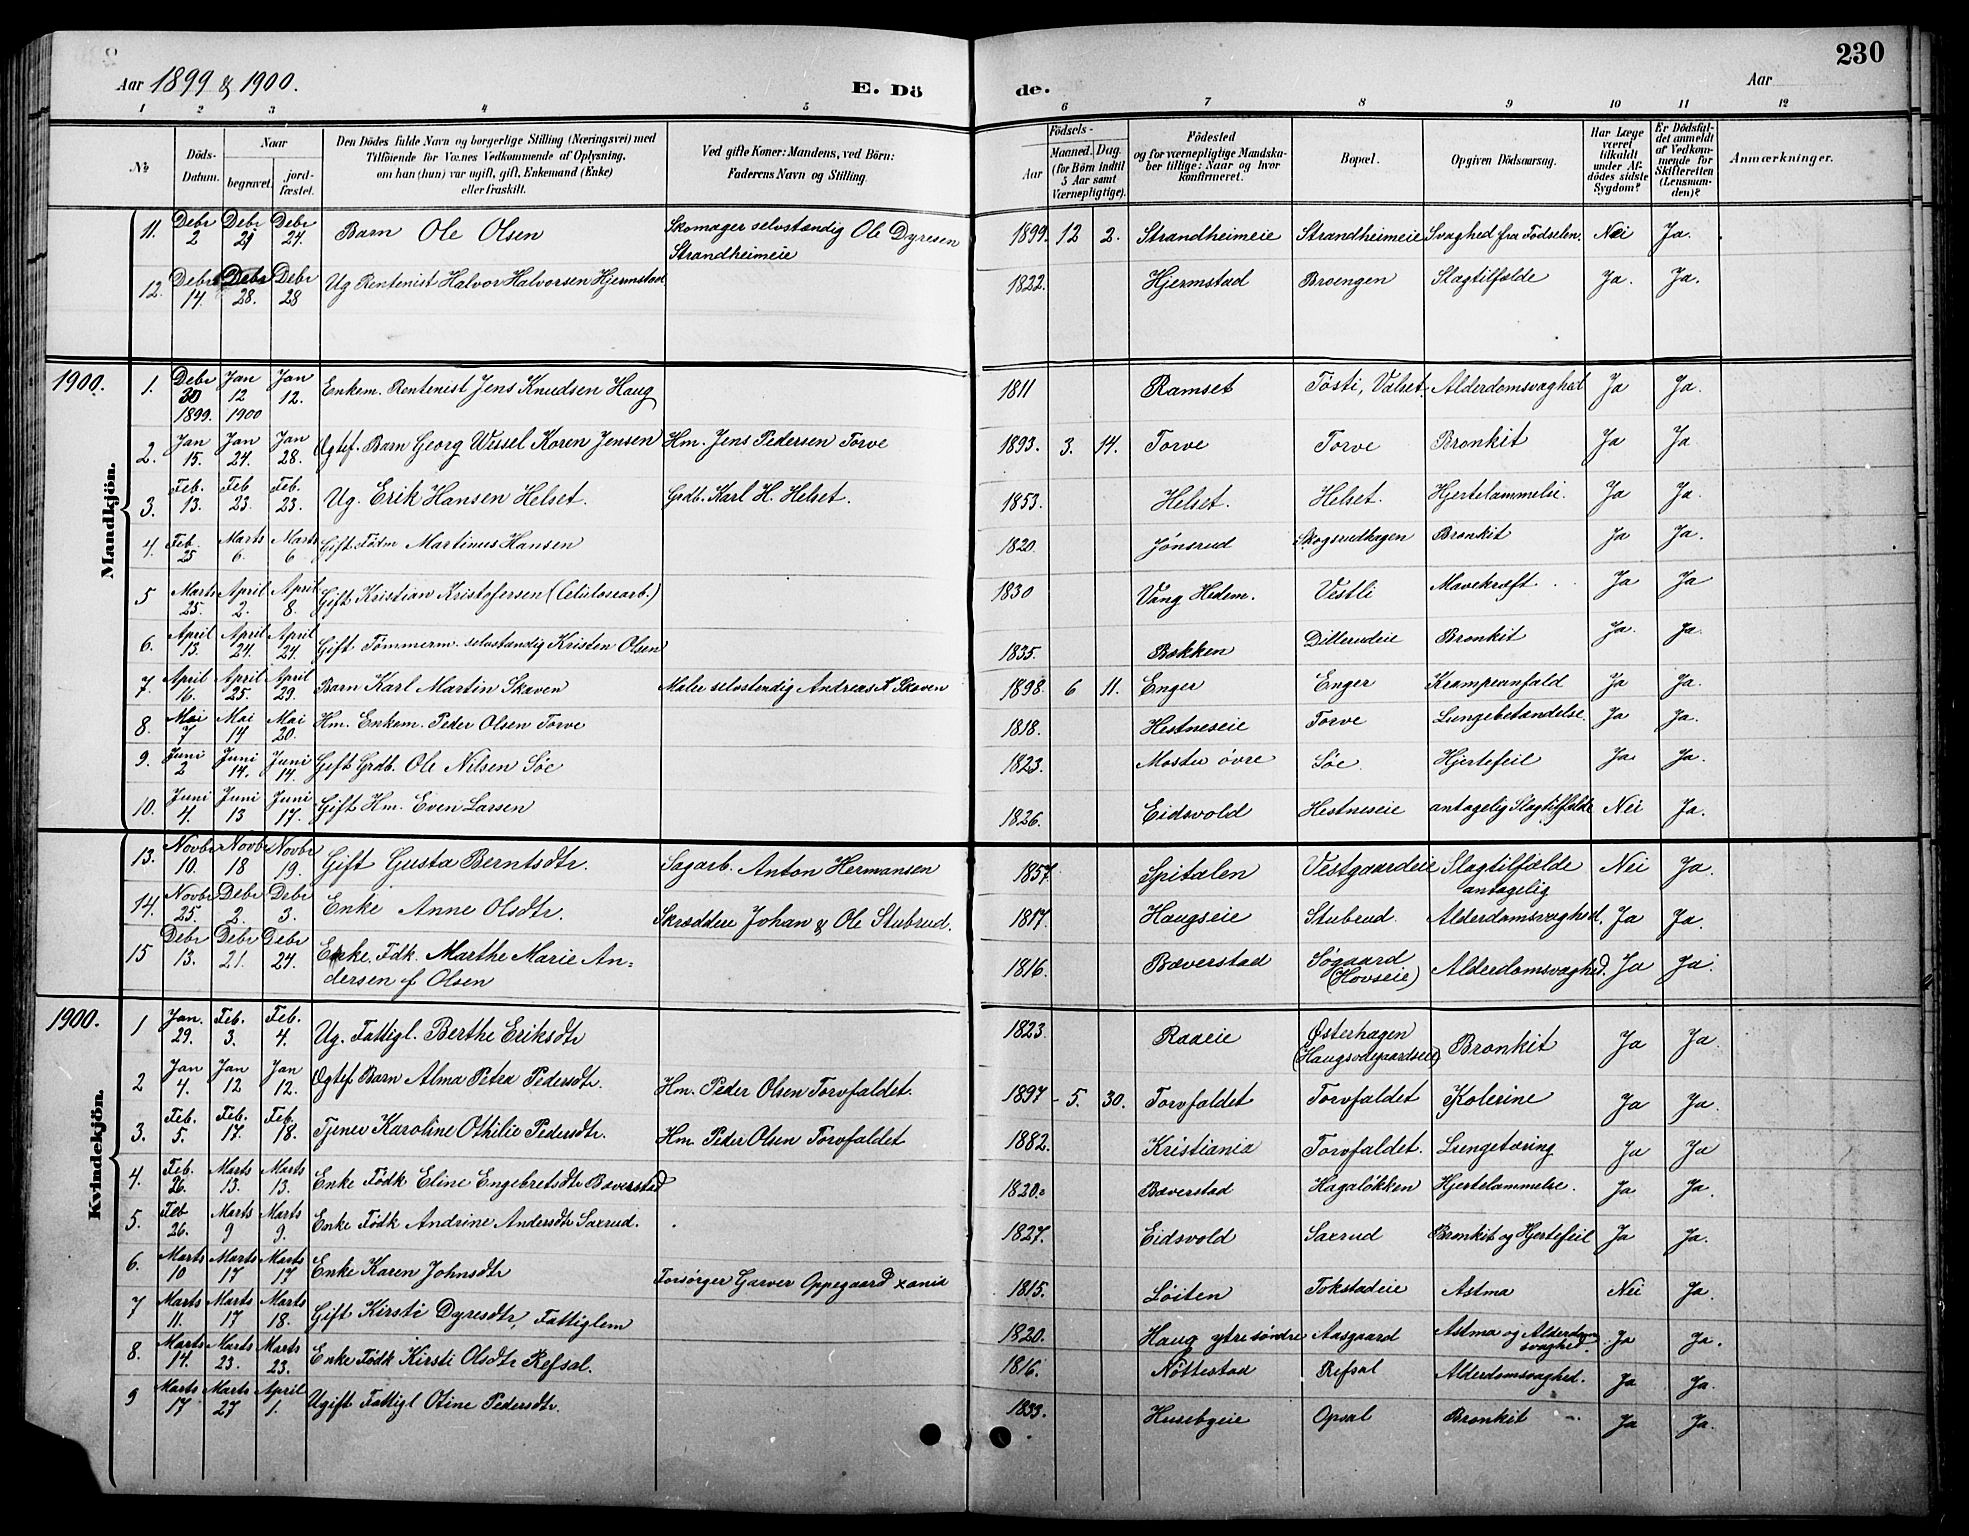 230
Aar 1899 & 1900.
E. Dö
de.
Aar
1 2 3 4 5 6 7 8 9 10 11 12
No
Döds-Datum.
Naar
begravet.
jord-fæstet.
Den Dödes fulde Navn og borgerlige Stilling (Næringsvei) med
Tilföiende for Vœnes Vedkommende af Oplysning,
om han (hun) var ugift, gift, Enkemand (Enke)
eller fraskilt.
Ved gifte Koner: Mandens, ved Börn:
Faderens Navn og Stilling.
Födsels-
Aar
Maaned. Dag.
(for Börn indtil
5 Aar samt
Værnepligtige).
Födested
og for værnepligtige Mandska-
ber tillige: Naar og hvor
konfirmeret.
Bopæl.
Opgiven Dödsaarsag.
Har Læge
været
tilkaldt
under Af-
dödes sidste
Sygdom?
Er Dödsfal-
det anmeldt
af Vedkom-
mende for
Skifteretten
(Lensman-
den)?
Anmærkninger.
11. Debr 2 Debr 21 Debr 24. Barn Ole Olsen Skomager selvstændig Ole Dyresen Strandheimeie 1899. 12 2. Strandheimeie Strandheimeie Svaghed fra Födselen. Nei Ja.
12. Debr 14. Debr 28. Debr 28 Ug Rentenist Halvor Halvorsen Hjermstad 1822. Hjermstad Broengen Slagtilfælde Ja. Ja.
1900.
Mandkjön.
1. Debr 30 1899. Jan 12 1900 Jan 12. Enkem. Rentenist Jens Knudsen Haug 1811 Ramset Tösti, Valset. Alderdomsvaghed Ja Ja.
2. Jan 15. Jan 24. Jan 28. Ogtef. Barn Georg Wessel Koren Jensen Hm. Jens Pedersen Torve 1893. 3. 14. Torve Torve Bronkit Ja Ja
3. Feb. 13. Feb 23. Feb. 23. Ug. Erik Hansen Helset. Grdb. Karl H. Helset. 1853. Helset. Helset. Hjertelammelse. Ja Ja.
4. Feb. 25 Marts 6. Marts 6 Gift Födm Martinus Hansen 1820. Jönsrud Skogsrudhagen Bronkit Ja Ja.
5 Marts 25. April 2. April 8. Gift Kristian Kristofersen (Celulosearb.) 1830 Vang Hedem. Vestli Mavekræft Ja Ja
6. April 13. April 24. April 24. Gift Tömmerm. selvstændig Kristen Olsen 1835. Bakken Dillerudeie Bronkit Ja. Ja.
7. April 16. April 25. April 29. Barn Karl Martin Skaven Maler selvstendig Andreas A Skaven 1898. 6 11. Enger Enger Krampeanfald Ja Ja.
8. Mai 7 Mai 14 Mai 20. Hm. Enkem. Peder Olsen Torve 1818. Hestneseie Torve Lungebetændelse. Ja Ja.
9. Juni 2 Juni 14. Juni 14. Gift Grdb. Ole Nilsen Söe 1823. Mostu övre Söe Hjertefeil Ja. Ja.
10. Juni 4. Juni 13 Juni 17. Gift Hm. Even Larsen 1826. Eidsvold Hestneseie antagelig Slagtilfælde Nei Ja.
13. Novbr 10. Novbr 18 Novbr 19. Gift Gusta Berntsdtr. Sagarb. Anton Hermansen 1857. Spitalen Vestgaardeie Slagtilfælde antagelig Nei Ja.
14. Novbr 25. Debr 2. Debr 3. Enke Anne Olsdtr. Skræddere Johan & Ole Stubrud. 1817. Haugseie Stubrud. Alderdomsvaghed. Ja Ja.
15 Debr 13. Debr 21. Debr 24. Enke. Fdk. Marthe Marie An=
dersen f Olsen 1816. Bæverstad Søgaard (Hovseie) Alderdomsvaghed. Ja Ja.
1900.
Kvindekjön.
1 Jan. 29. Feb. 3. Feb. 4. Ug. Fattigl. Berthe Eriksdtr 1823. Raaeie Østerhagen (Haugsvegaardseie) Bronkit Ja Ja.
2 Jan 4. Jan 12 Jan 12. Ogtef Barn Alma Petra Pedersdtr. Hm. Peder Olsen Torvfaldet. 1897 5. 30. Torvfaldet Torvfaldet Kolerine Ja Ja.
3. Feb. 5. Feb. 17. Feb. 18. Tjener Karoline Othilie Pedersdtr. Hm. Peder Olsen Torvfaldet 1882. Kristiania Torvfaldet. Lungetæring Ja Ja
4. Feb. 26. Marts 13. Marts 13. Enke Födk Eline Engebretsdtr Bæverstad 1820. Bæverstad Hagalökken Hjertelammelse. Ja Ja.
5. Feb 26. Marts 9 Marts 9. Enke Födk Andrine Andersdtr Saxrud. 1827. Eidsvold Saxrud Bronkit og Hjertefeil Ja Ja.
6. Marts 10 Marts 17 Marts 17 Enke Karen Johnsdtr Forsörger Garver Oppegaard xania 1815. Löiten Tokstadeie Astma Nei Ja.
7 Marts 11. Marts 17 Marts 18. Gift Kirsti Dyresdtr, Fattiglem 1820. Haug ytre söndre Aasgaard Astma og Alderdomsvaghed. Ja Ja.
8. Marts 14. Marts 23. Marts 23. Enke Födk Kirsti Olsdtr Refsal. 1816. Nöttestad Refsal Alderdomsvaghed. Ja Ja.
9 Marts 17 Marts 27 April 1. Ugift Fattigl Otine Pedersdtr. 1833. Husebyeie Opsal Bronkit Ja Ja.